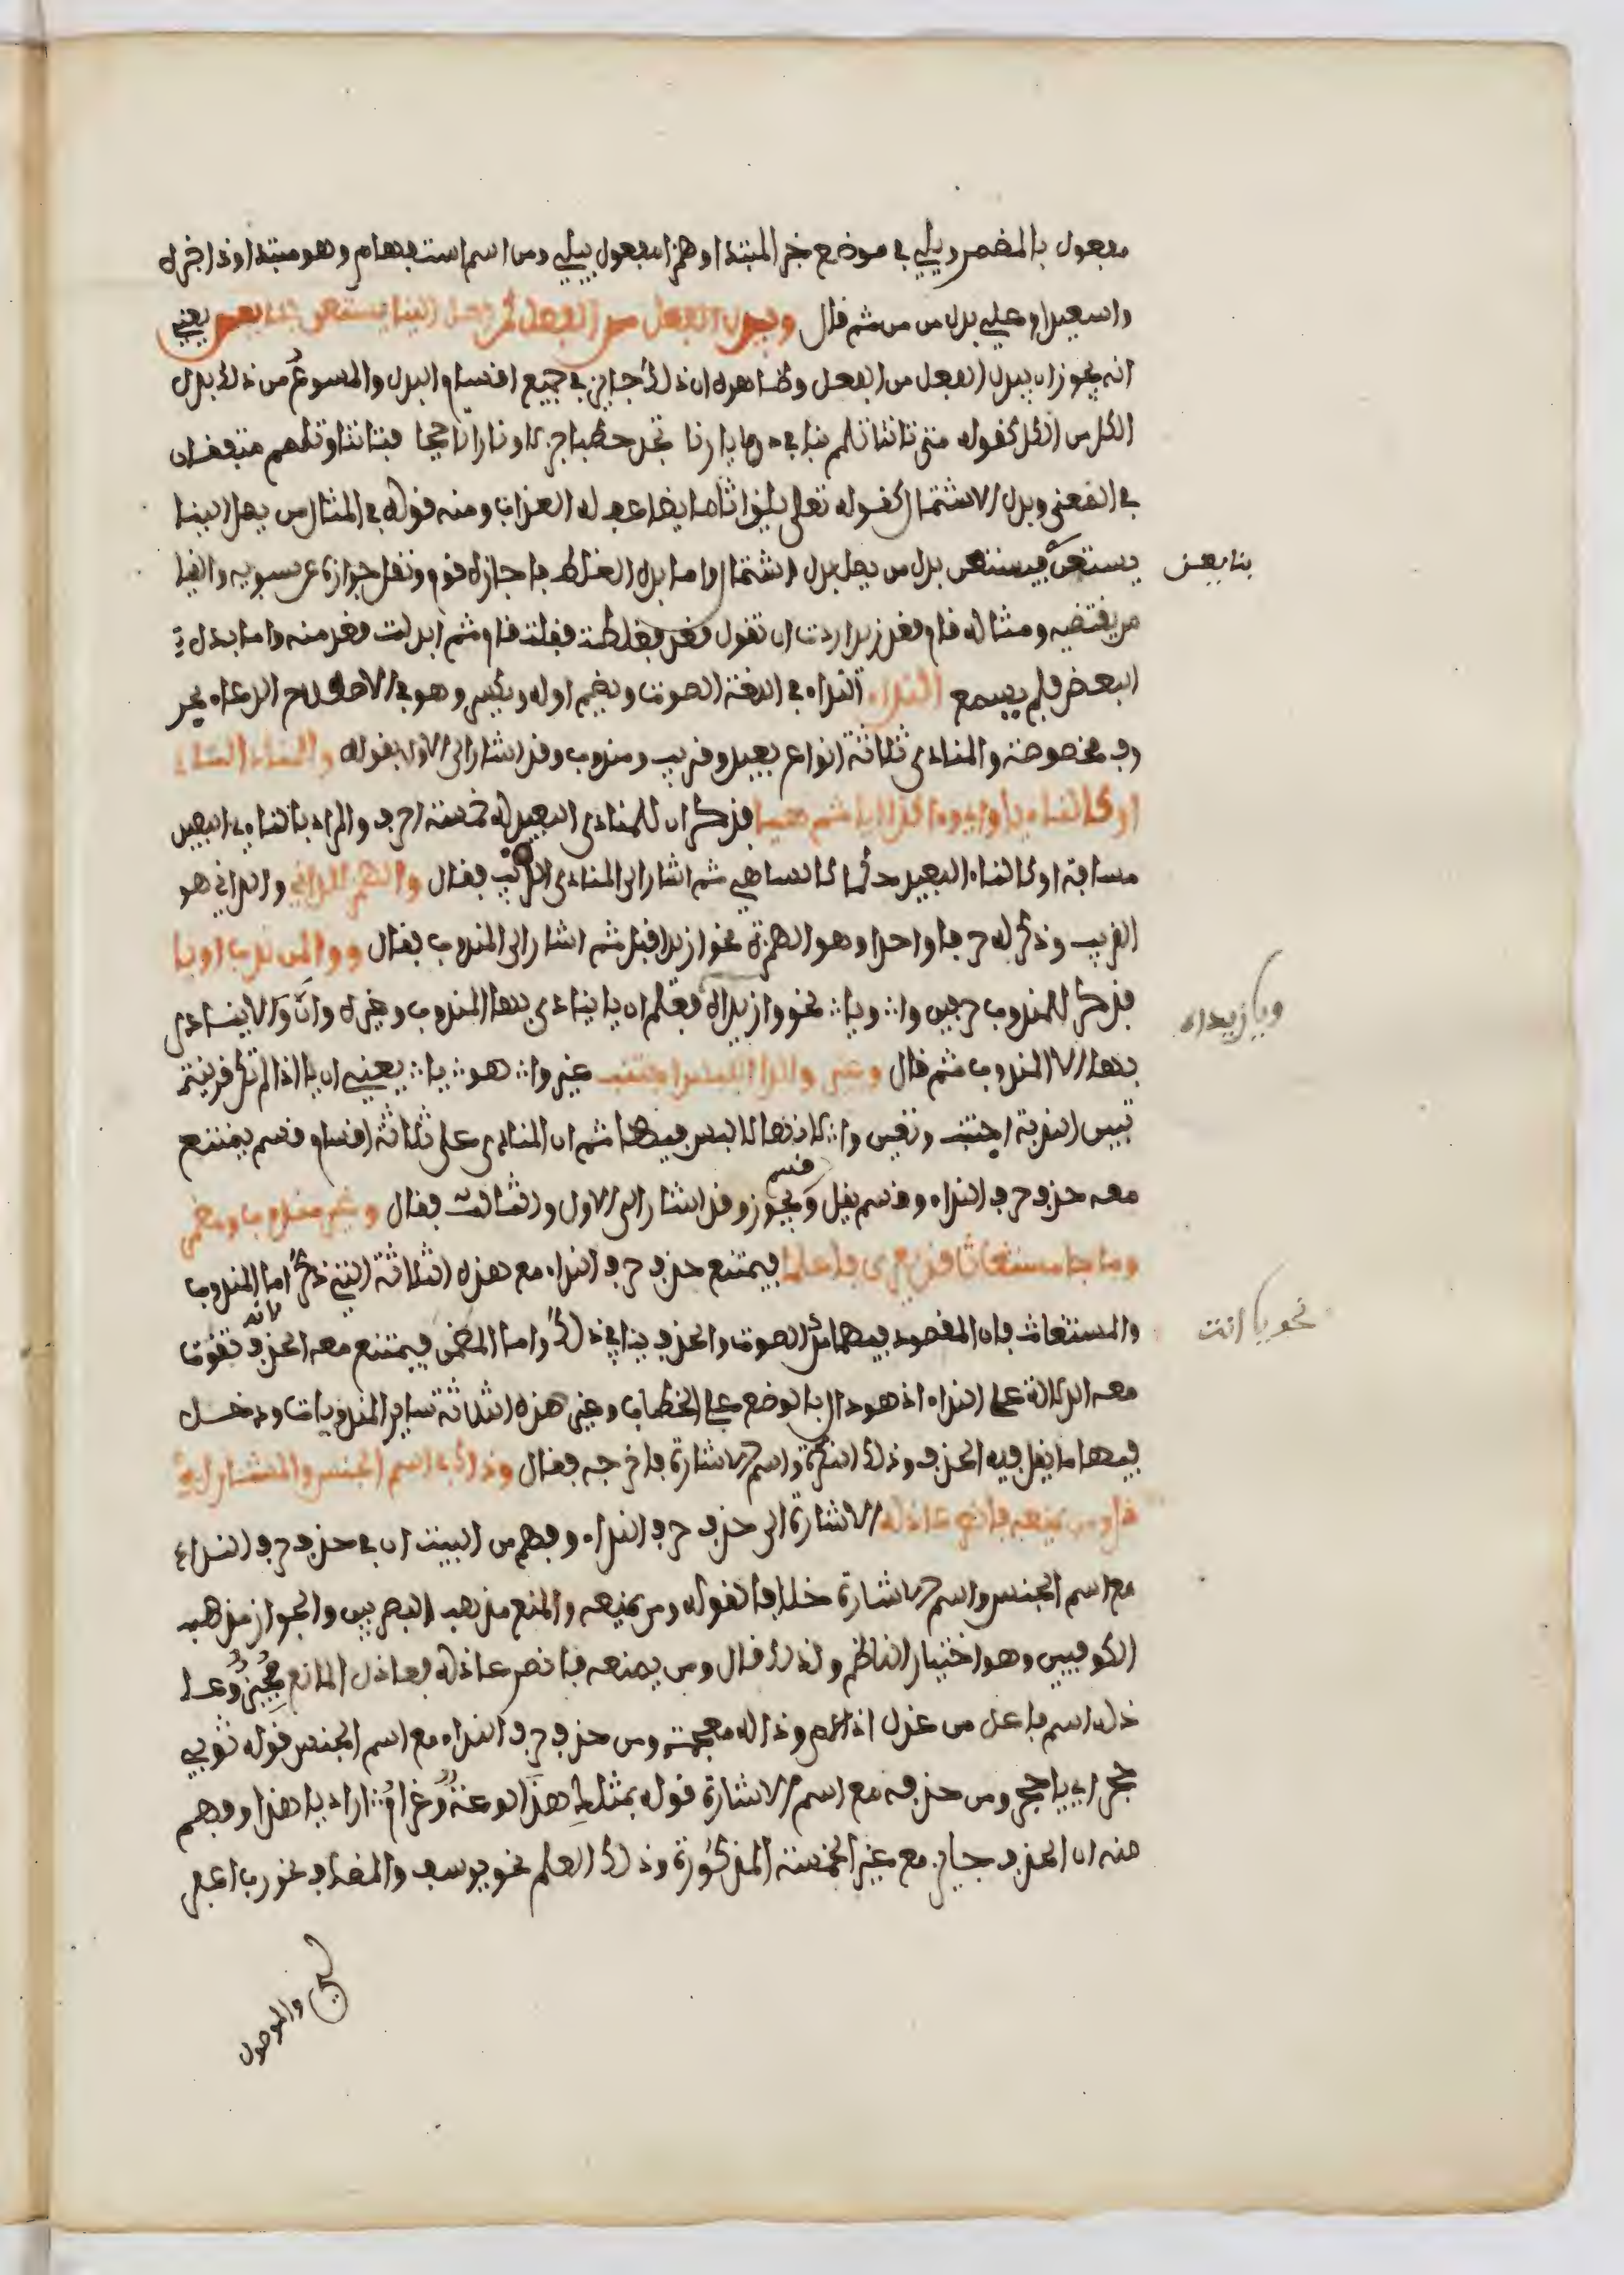 مفعول بالمضمر ويلي في موضع خبر المبتدا وهمزا مفعول بيلي ومن اسم استفهام وهو مبتدا وذا خبره
واسعيد او علي بدل من من ثم قال ويبدل الفعل من الفعل كمن يصل الينا يستعن بنا يعن يعني
انه يجوز ان يبدل الفعل من الفعل وظاهره ان ذلك جايز في جميع اقسام البدل والمسموع من ذلك بدل
الكل من الكل كقوله متى تاتنا تلمم بنا في ديارنا تجد حطبا جزلا ونارا تاججا فتاتنا وتلمم متفقان
في المعنى وبدل الاشتمال كقوله تعلى يلق اثاما يضاعف له العذاب ومنه قوله في المثال من يصل الينا
يستعن فيستعن بدل من يصل بدل اشتمال واما بدل الغلط فاجازه قوم ونقل جوازه عن سيبويه والقيا
بنا يعن
س يقتضيه ومثاله قام قعد زيد اردت ان تقول قعد فغلطت فقلت قام ثم ابدلت قعد منه واما بدل
البعض فلم يسمع النداء النداء في اللغة الصوت ويضم اوله ويكسر وهو في الاصطلاح الدعاء بحر
وف مخصوصة والمنادى ثلاثة انواع بعيد وقريب ومندوب وقد اشار الى الاول بقوله وللمنادى الناء
او كالناء يا واي وءا كذا ايا ثم هيا فذكر ان للمنادى البعيد له خمسة احرف والمراد بالناءي البعيد
مسافة او كالناء البعيد حكما كالساهي ثم اشار الى المنادى القريب فقال والهمز للداني والداني هو
القريب وذكر له حرفا واحدا وهو الهمزة نحو ازيد اقبل ثم اشار الى المندوب بقال ووا لمن ندب او يا
فذكر للمندوب حرفين وا ويا نحو وازيداه فعلم ان يا ينادى بها المندوب وغيره وان وا لا ينادى
ويا زيداه
بها الا المندوب ثم قال وغير وا لدا اللبس اجتنب غير وا هو يا يعني ان يا اذا لم تكن قرينة
تبين الندبة اجتنبت وتعين وا لانها لا لبس فيها ثم ان المنادى على ثلاثة اقسام قسم يمتنع
معه حذف حرف النداء وقسم يقل وقسم يجوز وقد اشار الى الاول والثالث فقال وغير مندوب ومضمر
وما جا مستغاثا قد يعرى فاعلما فيمتنع حذف حرف النداء مع هذه الثلاثة التي ذكر اما المندوب
والمستغاث فان المقصود فيهما مد الصوت والحذف ينافي ذلك واما المضمر فيمتنع معه الحذف لانه تفوت
نحو يا انت
معه الدلالة على النداء اذ هو دال بالوضع على الخطاب وغير هذه الثلاثة ساير المندوبات ودخل
فيها ما يقل فيه الحذف وذلك النكرة واسم الاشارة فاخرجه فقال وذاك في اسم الجنس والمشار له
قل ومن يمنعه فانصر عاذله الاشارة الى حذف حرف النداء وفهم من البيت ان في حذف حرف النداء
مع اسم الجنس واسم الاشارة خلافا لقوله ومن يمنعه والمنع مذهب البصريين والجواز مذهب
الكوفيين وهو اختيار الناظم ولذلك قال ومن يمنعه فانصر عاذله فعاذل المانع مجيز وعا
ذله اسم فاعل من عذل اذا لام وذاله معجمة ومن حذف حرف النداء مع اسم الجنس قوله ثوبي
حجر اي يا حجر ومن حذفه مع اسم الاشارة قوله بمثلك هذا لوعة وغرام اراد يا هذا وفهم
منه ان الحذف جايز مع غير الخمسة المذكورة وذلك العلم نحو يوسف والمضاف نحو رب اغفر
لي والموصول